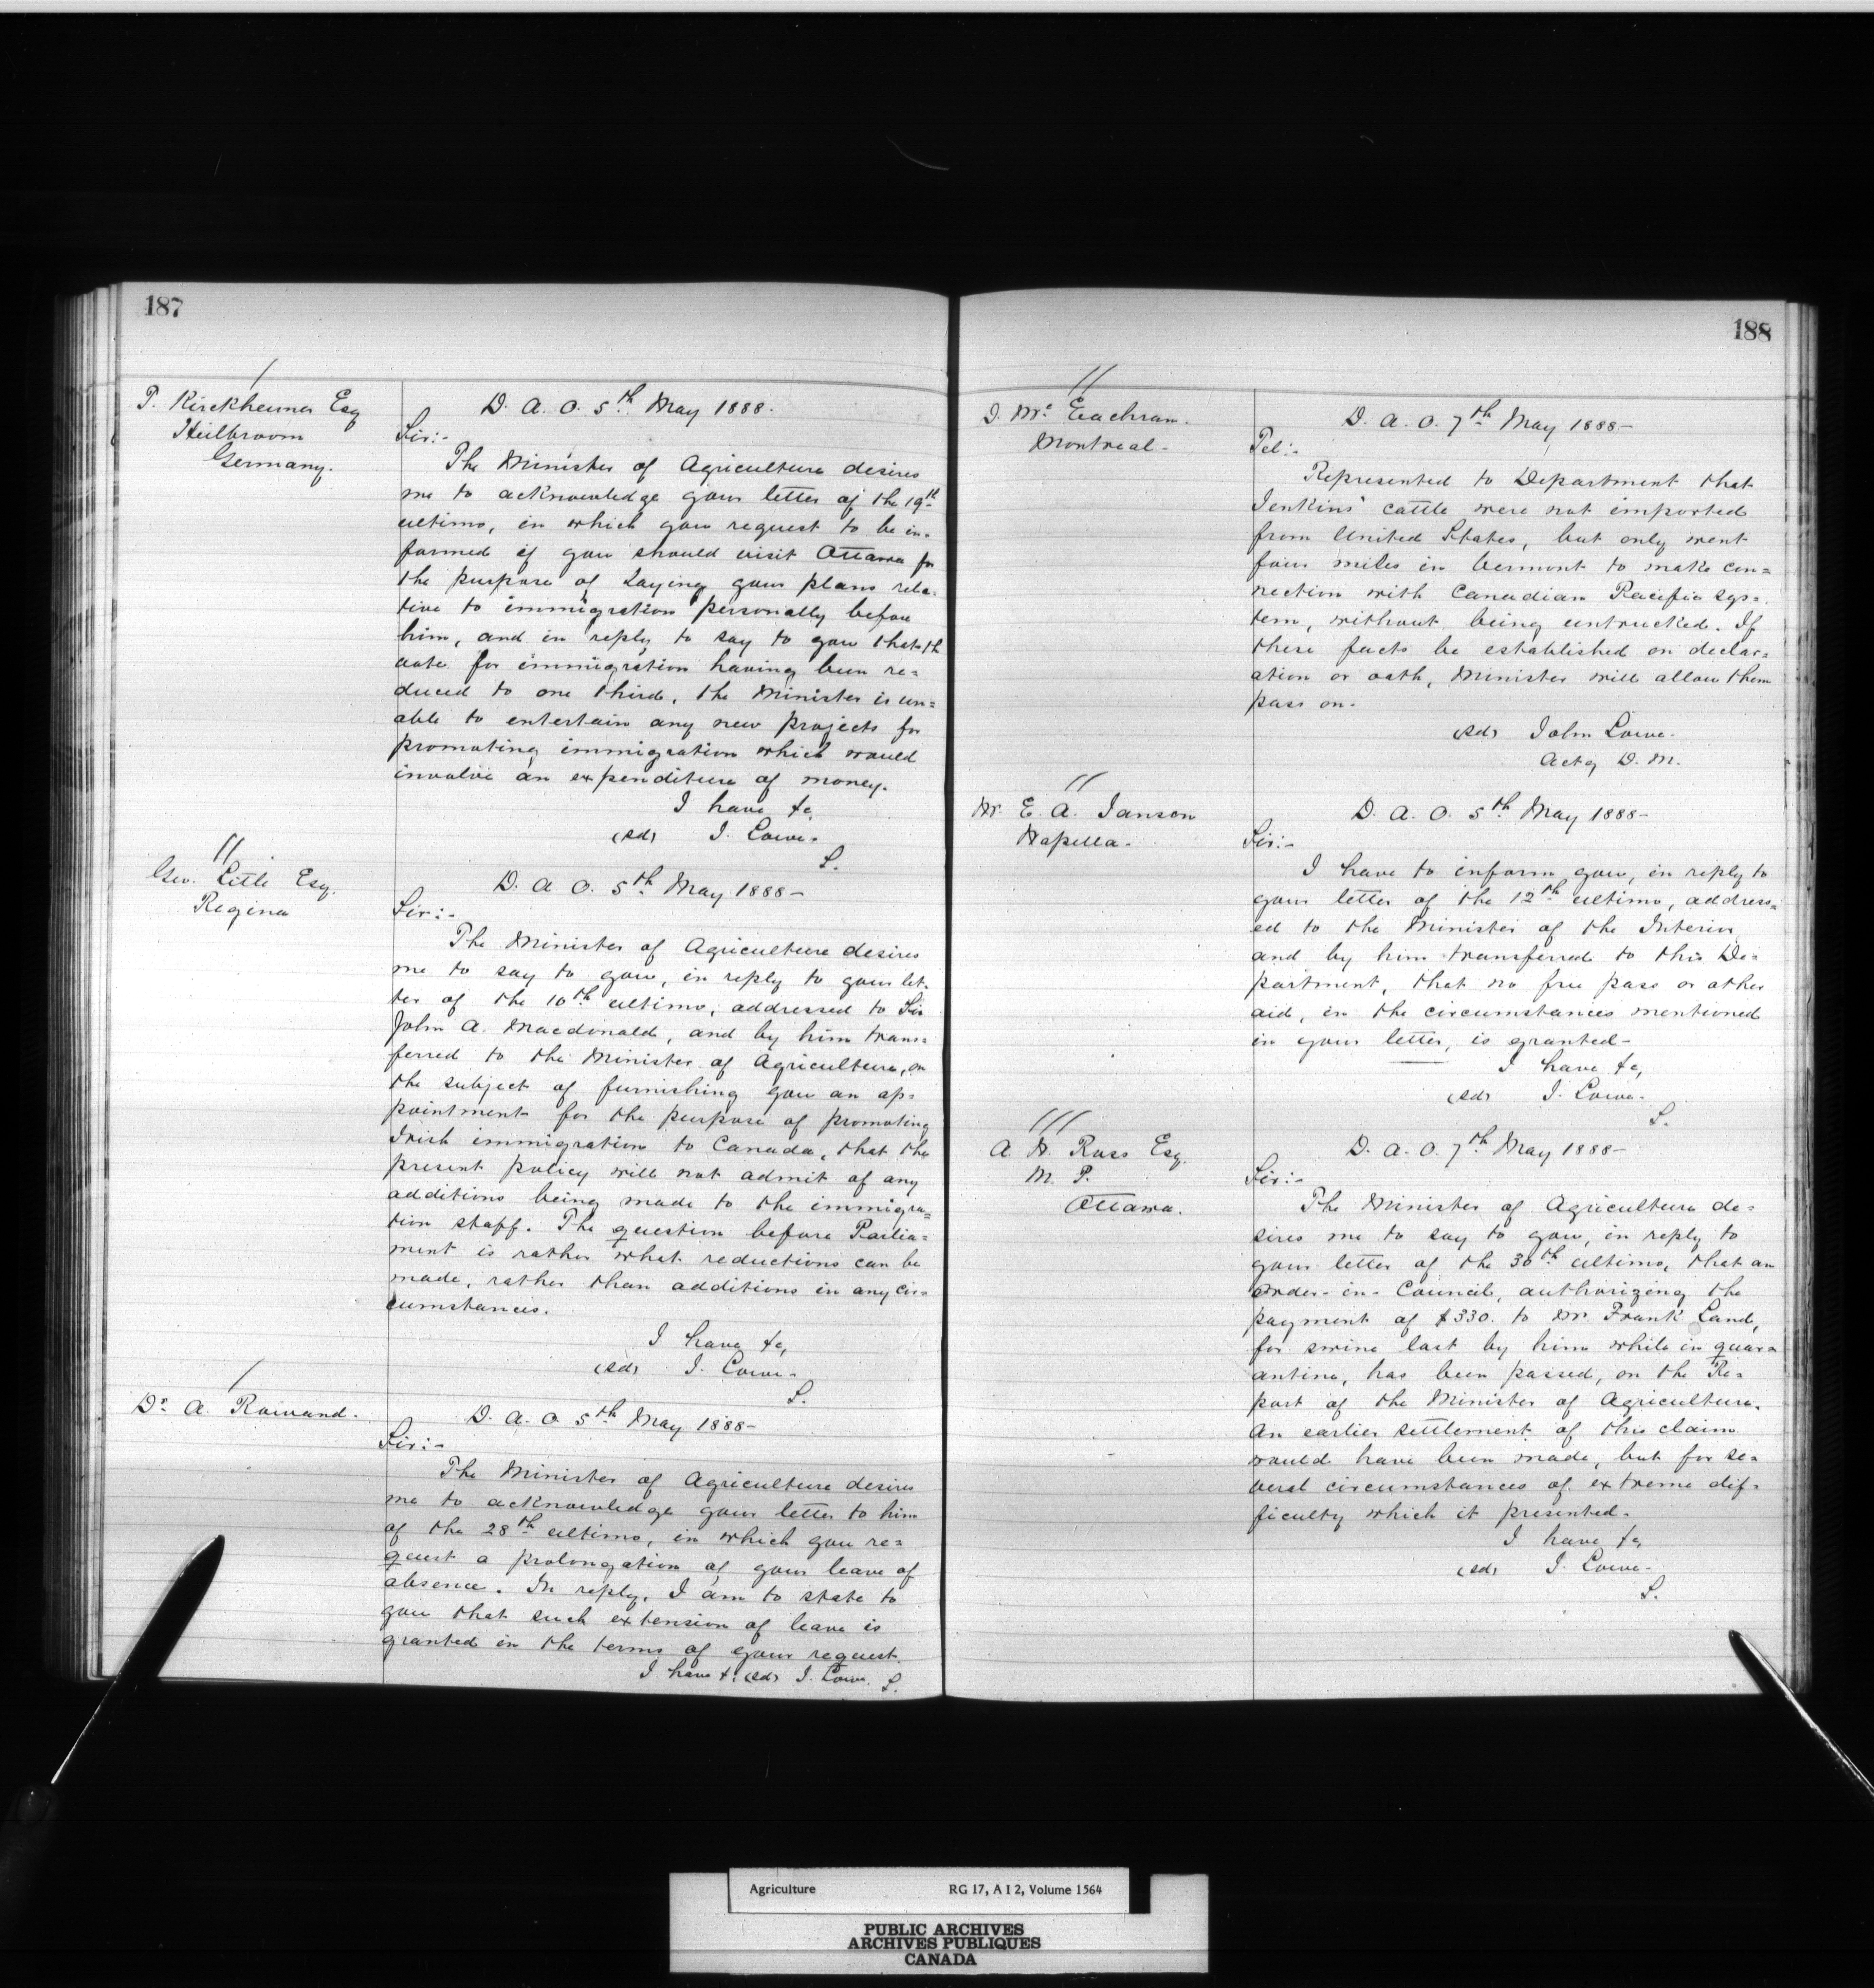 187
P. Kirckheimer Esq
Heilbroom
Germany.
D. A. O. 5th May 1888.
Sir:-
The Minister of Agriculture desires
me to acknowledge your letter of the 19th
ultimo, in which you request to be in=
formed if you should visit Ottawa for
the purpose of Laying your plans rela=
tive to immigration personally before
him, and in reply, to say to you that th
vote for immigration having been re=
duced to one third, the Minister is un=
able to entertain any new projects for
promoting immigration which would
involve an expenditure of money.
I have &c,
(sd) J. Lowe.
S.
Geo. Little Esq.
Regina
D. A. O. 5th May 1888-
Sir:-
The Minister of Agriculture desires
me to say to you, in reply to your let=
ter of the 10th ultimo, addressed to Sir
John A. Macdonald, and by him trans=
ferred to the Minister of Agriculture, on
the subject of furnishing you an ap=
pointment for the purpose of promoting
Irish immigration to Canada, that the
present policy will not admit of any
additions being made to the immigra=
tion staff. The question before Parlia=
ment is rather what reductions can be
made, rather than additions in any cir=
cumstances.
I have &c,
(sd) J. Lowe.
S.
Dr A.
D. A. O. 5th May 1888-
Sir:-
The Minister of Agriculture desires
me to acknowledge your letter to him
of the 28th ultimo, in which you re=
quest a prolongation of your leave of
absence. In reply, I am to state to
you that such extension of leave is
granted in the terms of your request.
I have &c (sd) J. Lowe. S.
188
D. Mc Eachran.
Montreal-
D. A. O. 7th May 1888-
Tel:-
Represented to Department that
Jenkins' cattle were not imported
from United States, but only went
four miles in Vermont to make con=
nection with Canadian Pacific sys=
tem, without being untrucked. If
these facts be established on declar=
ation or oath, Minister will allow them
pass on.
(sd) John Lowe.
Actg D. M.
Mr. E. A. Janson
Wapella.
D. A. O. 5th May 1888-
Sir:-
I have to inform you, in reply to
your letter of the 12th ultimo, address=
ed to the Minister of the Interior
and by him transferred to this De=
partment, that no free pass or other
aid, in the circumstances mentioned
in your letter, is granted-
I have &c,
(sd) J. Lowe.
S.
A. W. Ross Esq.
M. P.
Ottawa.
D. A. O. 7th May 1888-
Sir:-
The Minister of Agriculture de=
sires me to say to you, in reply to
your letter of the 30th ultimo, that an
Order-in-Council, authorizing the
payment of $330. to Mr. Frank Land,
for swine lost by him while in quar=
antine, has been passed, on the Re=
port of the Minister of Agriculture.
An earlier settlement of this claim
would have been made, but for se=
veral circumstances of extreme dif=
ficulty which it presented.
I have &c,
(sd) J. Lowe.
S.
Agriculture RG 17, A I 2, Volume 1564
PUBLIC ARCHIVES
ARCHIVES PUBLIQUES
CANADA